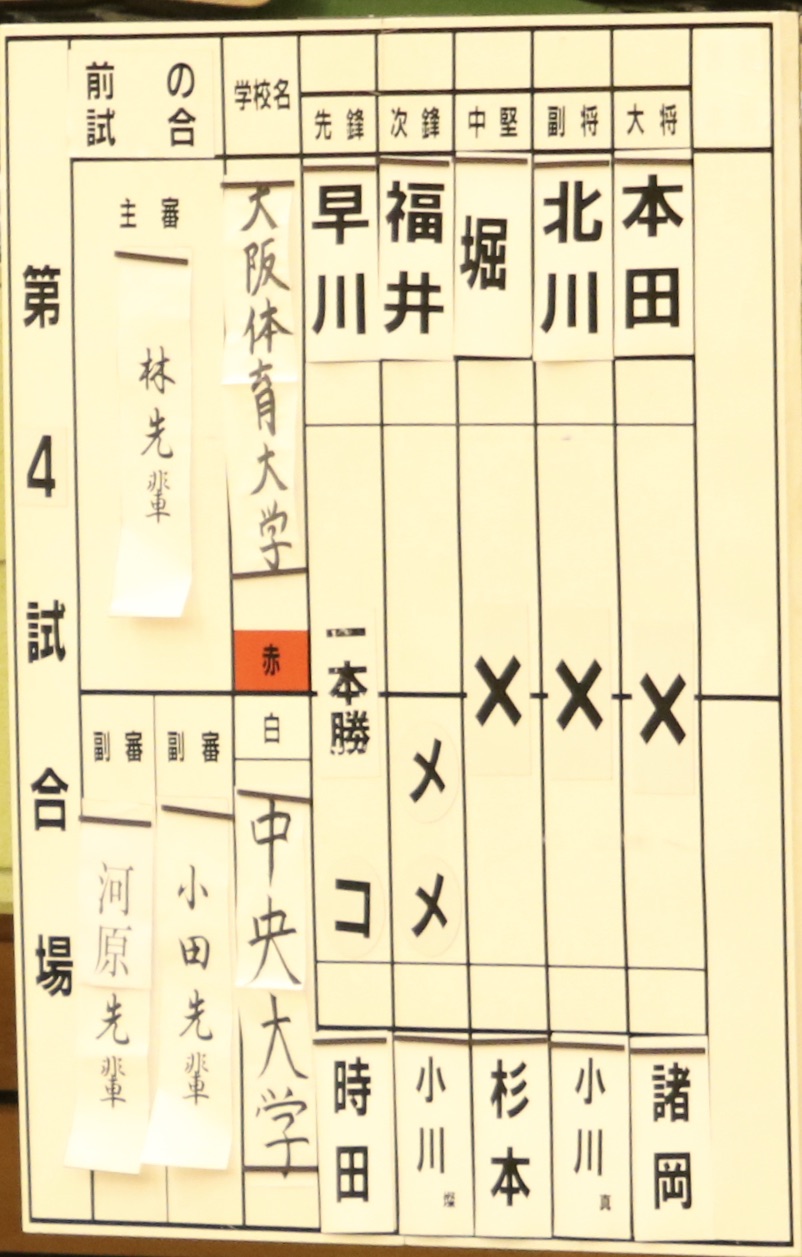 第4試合場
前の試合
主審
林先輩
副審
河原先輩
副審
小田先輩
学校名
大阪体育大学
赤
白
中央大学
先鋒
早川
一本勝
コ
時田
次鋒
福井
メ
メ
小川 燦
中堅
堀
×
杉本
副将
北川
×
小川 真
大将
本田
×
諸岡